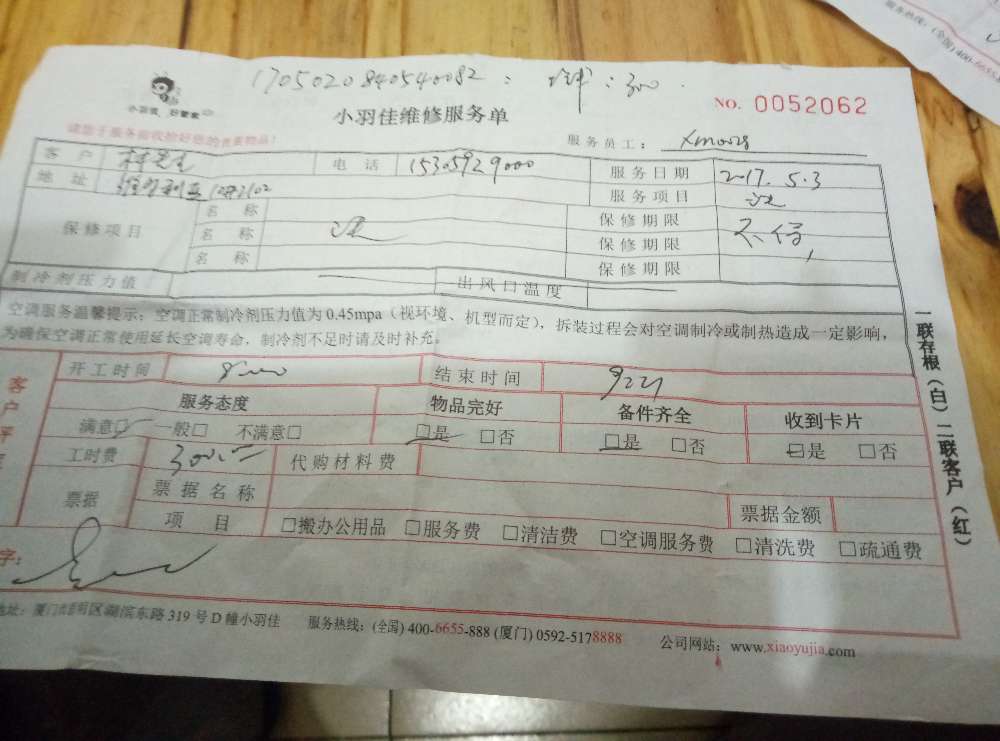 服务热线:(全国)400-6655
1705020840540082: : 300.
小羽佳 好管家
小羽佳维修服务单
NO. 0052062
请您于服务前收拾好您的贵重物品!
服务员工: xm0028
客户 林先生 电话 15305929000 服务日期 2017.5.3
地址 维多利亚 服务项目
保修项目 名称 保修期限 不保
名称 保修期限
名称 保修期限
制冷剂压力值 出风口温度
空调服务温馨提示:空调正常制冷剂压力值为 0.45mpa(视环境、机型而定),拆装过程会对空调制冷或制热造成一定影响,
为确保空调正常使用延长空调寿命,制冷剂不足时请及时补充。
开工时间 结束时间
服务态度 物品完好 备件齐全 收到卡片
满意□ 一般□ 不满意□ □是 □否 □是 □否 □是 □否
工时费 300.00 代购材料费
票据 票据名称 票据金额
项目 □搬办公用品 □服务费 □清洁费 □空调服务费 □清洗费 □疏通费
客户评
字:
地址:厦门市思明区湖滨东路 319 号 D 幢小羽佳 服务热线:(全国) 400-6655-888 (厦门) 0592-5178888 公司网站:www.xiaoyujia.com
一联存根(白) 二联客户(红)